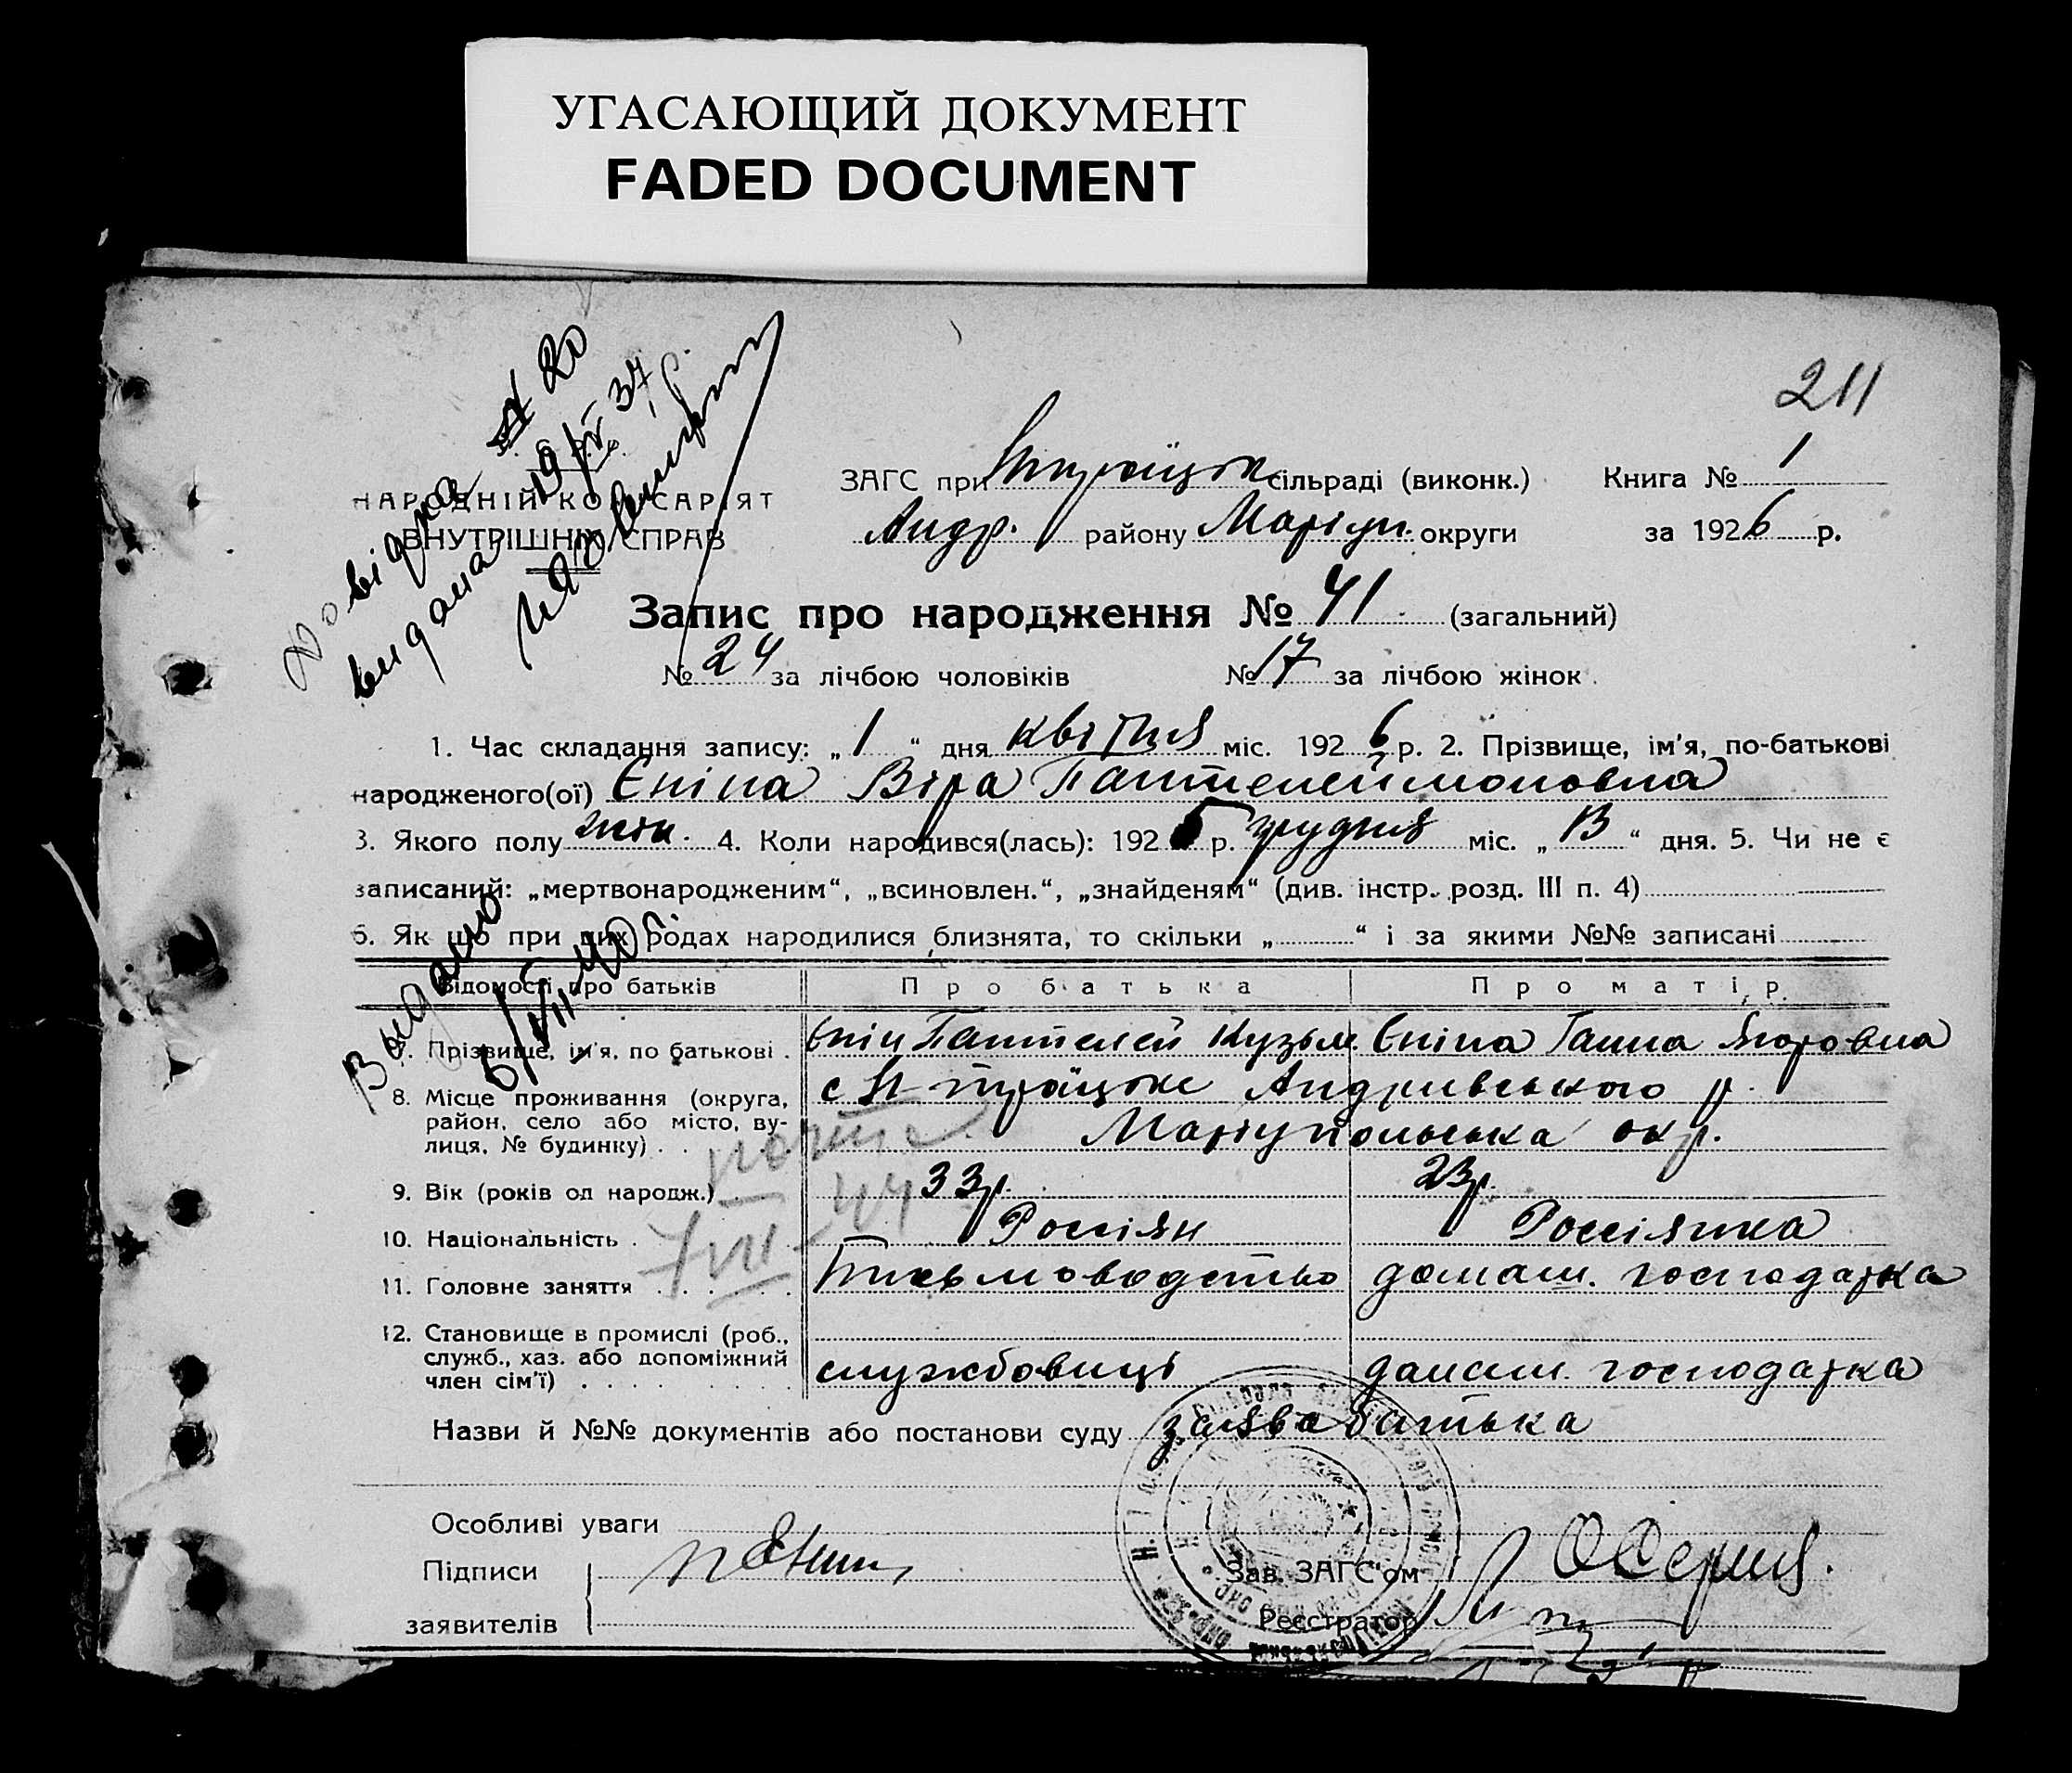 УГАСАЮЩИЙ ДОКУМЕНТ
FADED DOCUMENT
211
Довідка № 20
видана 19/IV 37 р.
НАРОДНІЙ КОМІСАРІЯТ
ВНУТРІШНІХ СПРАВ
ЗАГС при сільраді (виконк.) Книга № 1
Андр. району Маріуп. округи за 1926 р.
Запис про народження № 41 (загальний)
№ 24 за лічбою чоловіків № 17 за лічбою жінок
1. Час складання запису: „1“ дня квітня міс. 1926 р. 2. Прізвище, ім'я, по-батькові
народженого(ої) Єніна Віра Пантелеймоновна
3. Якого полу жін. 4. Коли народився(лась): 1925 р. грудня міс. „13“ дня. 5. Чи не є
записаний: „мертвонародженим“, „всиновлен.“, „знайденям“ (див. інстр. розд. III п. 4)
6. Як що при цих родах народилися близнята, то скільки „ “ і за якими №№ записані
Выдано
Відомості про батьків Про батька Про матір
7. Прізвище, ім'я, по батькові . Єнін Пантелей Кузьм. Єніна Ганна Ягоровна
8. Місце проживання (округа, район, село або місто, ву-
лиця, № будинку) . .
с Н-троїцьке Андриевського р.
Маріупольська окр.
9. Вік (років од народж.) 33 р. 23 р.
10. Національність . Россіян Россіянка
7 VII - 44
11. Головне заняття . . . . . Письмоводство домаш. господарка
12. Становище в промислі (роб.,
служб., хаз. або допоміжний
член сім'ї) . . . . . . . . службовиці домаш. господарка
Назви й №№ документів або постанови суду заява батька
Особливі уваги
Підписи
заявителів
Зав. ЗАГС'ом
Реєстратор